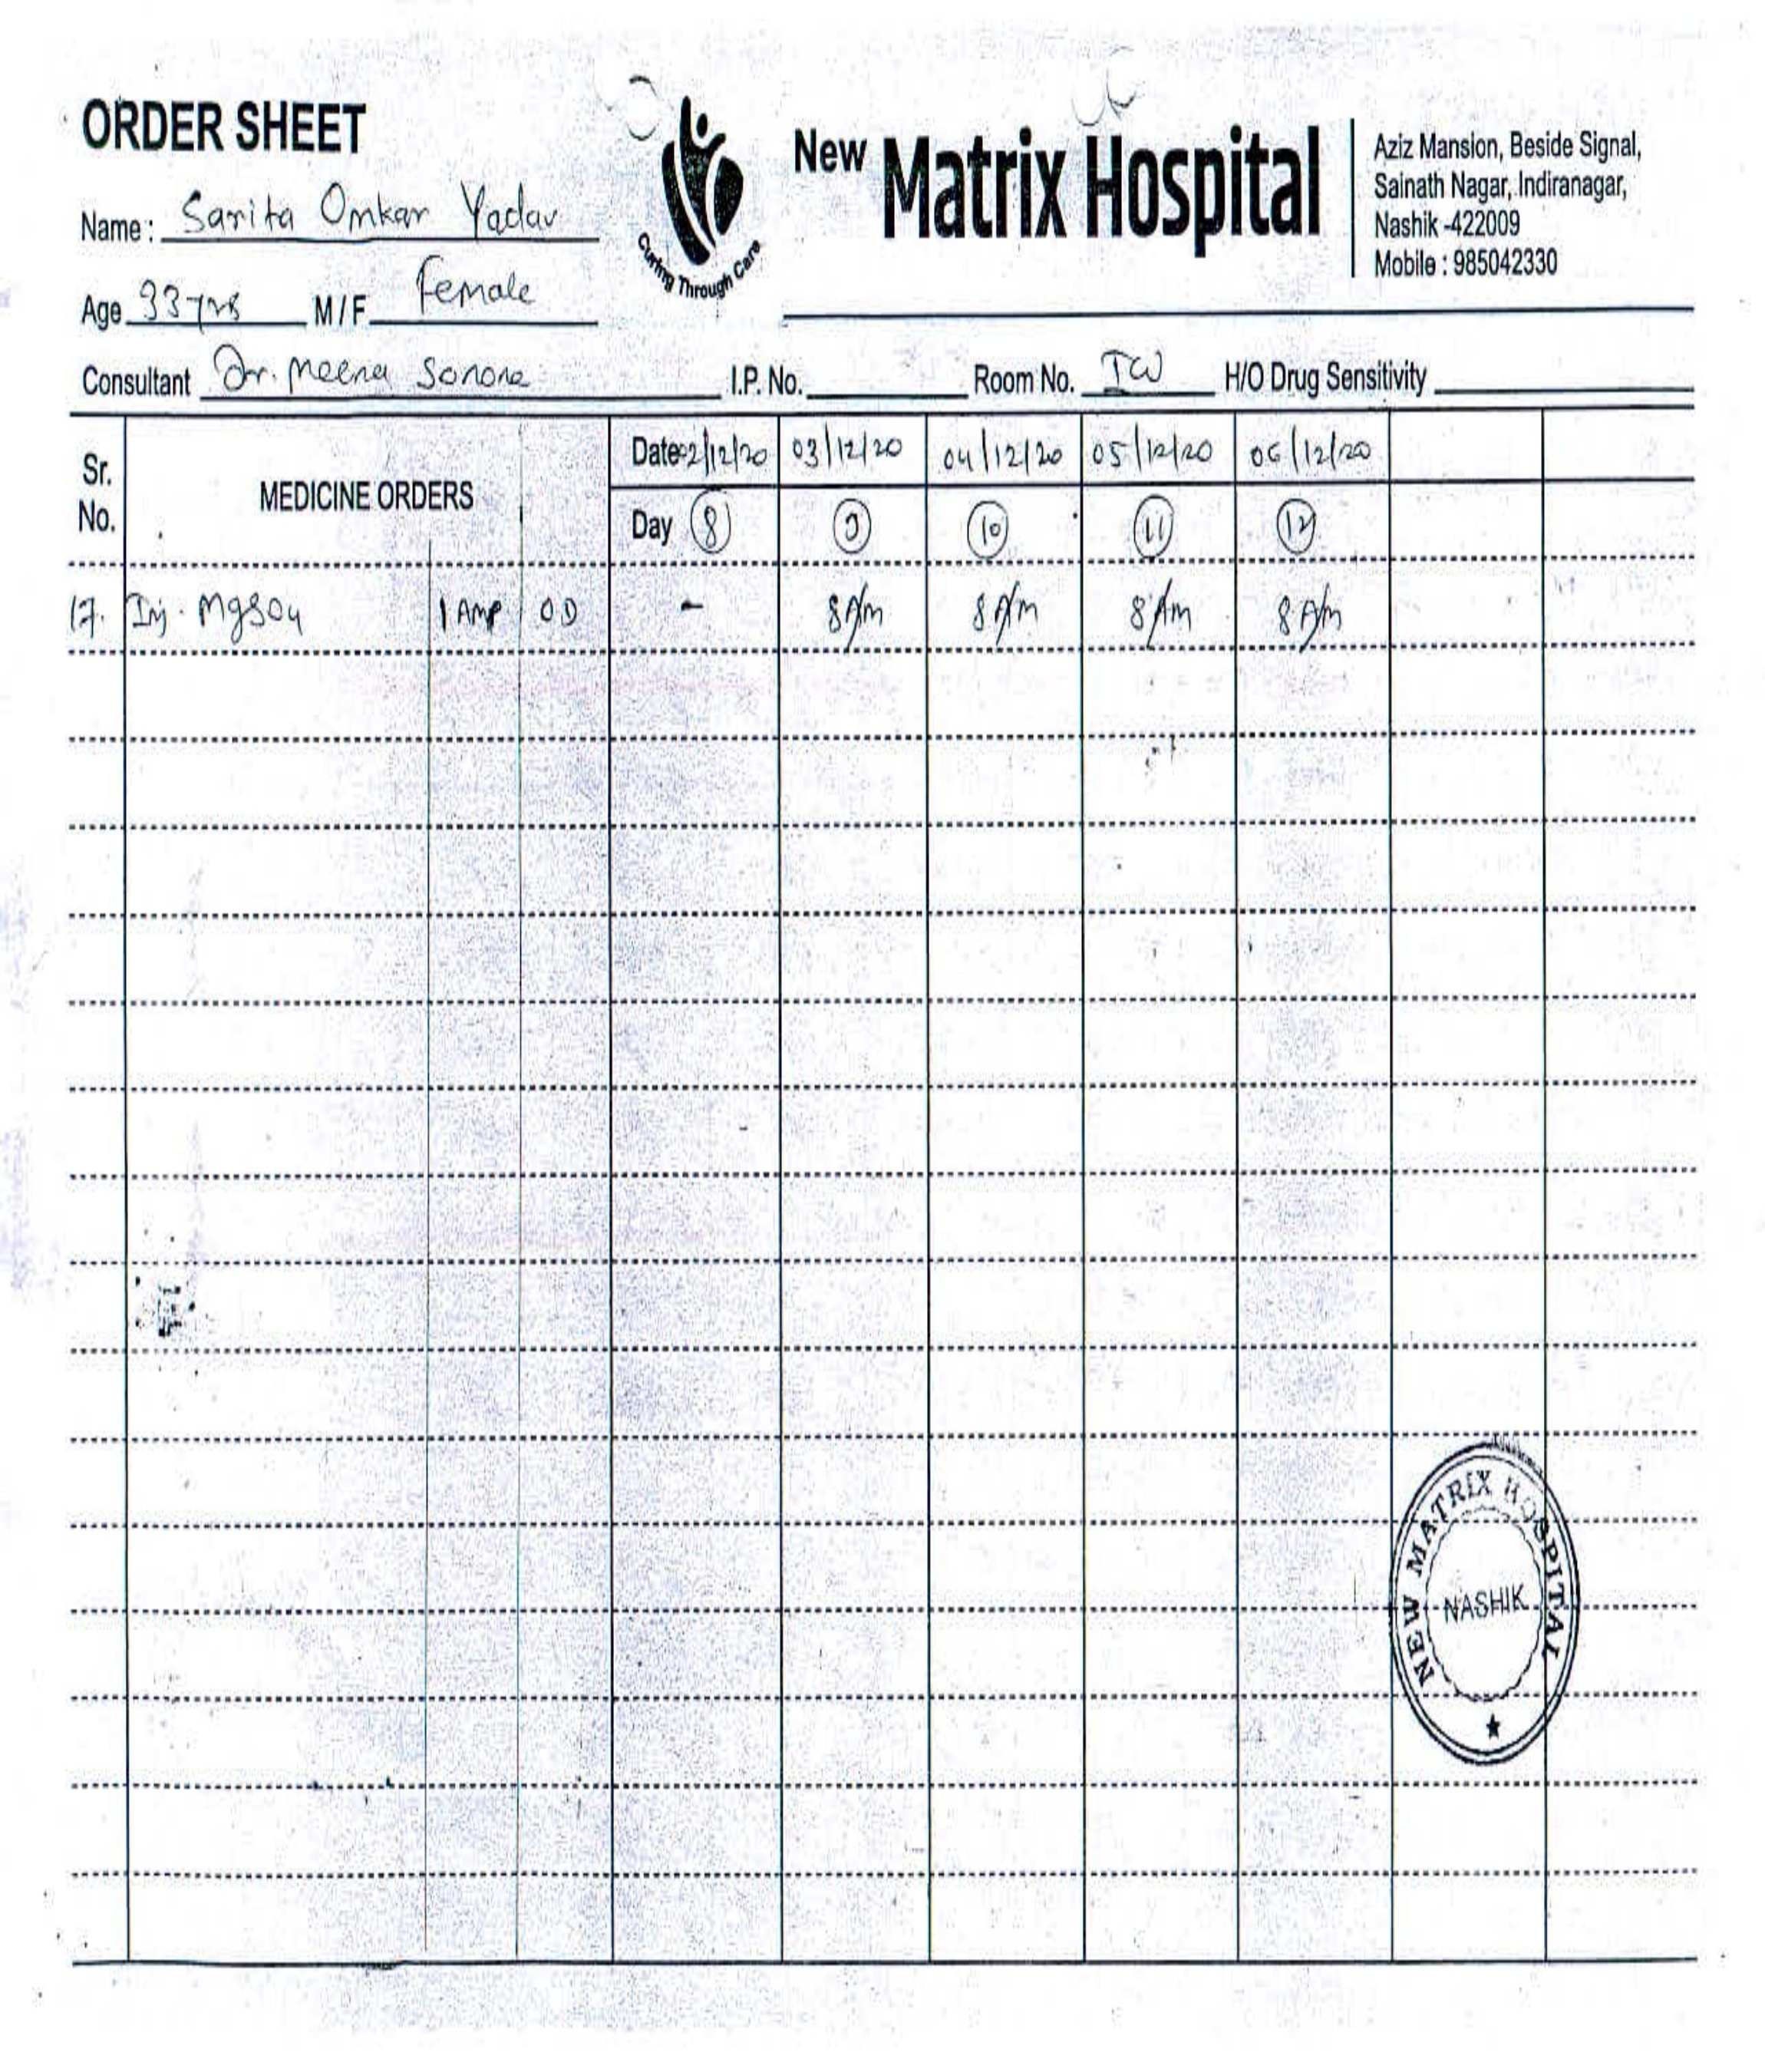 ORDER SHEET
Name: Sarita Omkar Yadav
Age 33yrs M/F Female
Curing Through Care
New Matrix Hospital
Aziz Mansion, Beside Signal,
Sainath Nagar, Indiranagar,
Nashik -422009
Mobile : 985042330
Consultant Dr. Meena Sonone I.P. No. Room No. H/O Drug Sensitivity
Sr. No. MEDICINE ORDERS Date 02/12/20 03/12/20 04/12/20 05/12/20 06/12/20
Day 8 9 10 11 12
17. Inj. MgSO4 1 AMP OD - 8 A/m 8 A/m 8 A/m 8 A/m
NEW MATRIX HOSPITAL
NASHIK